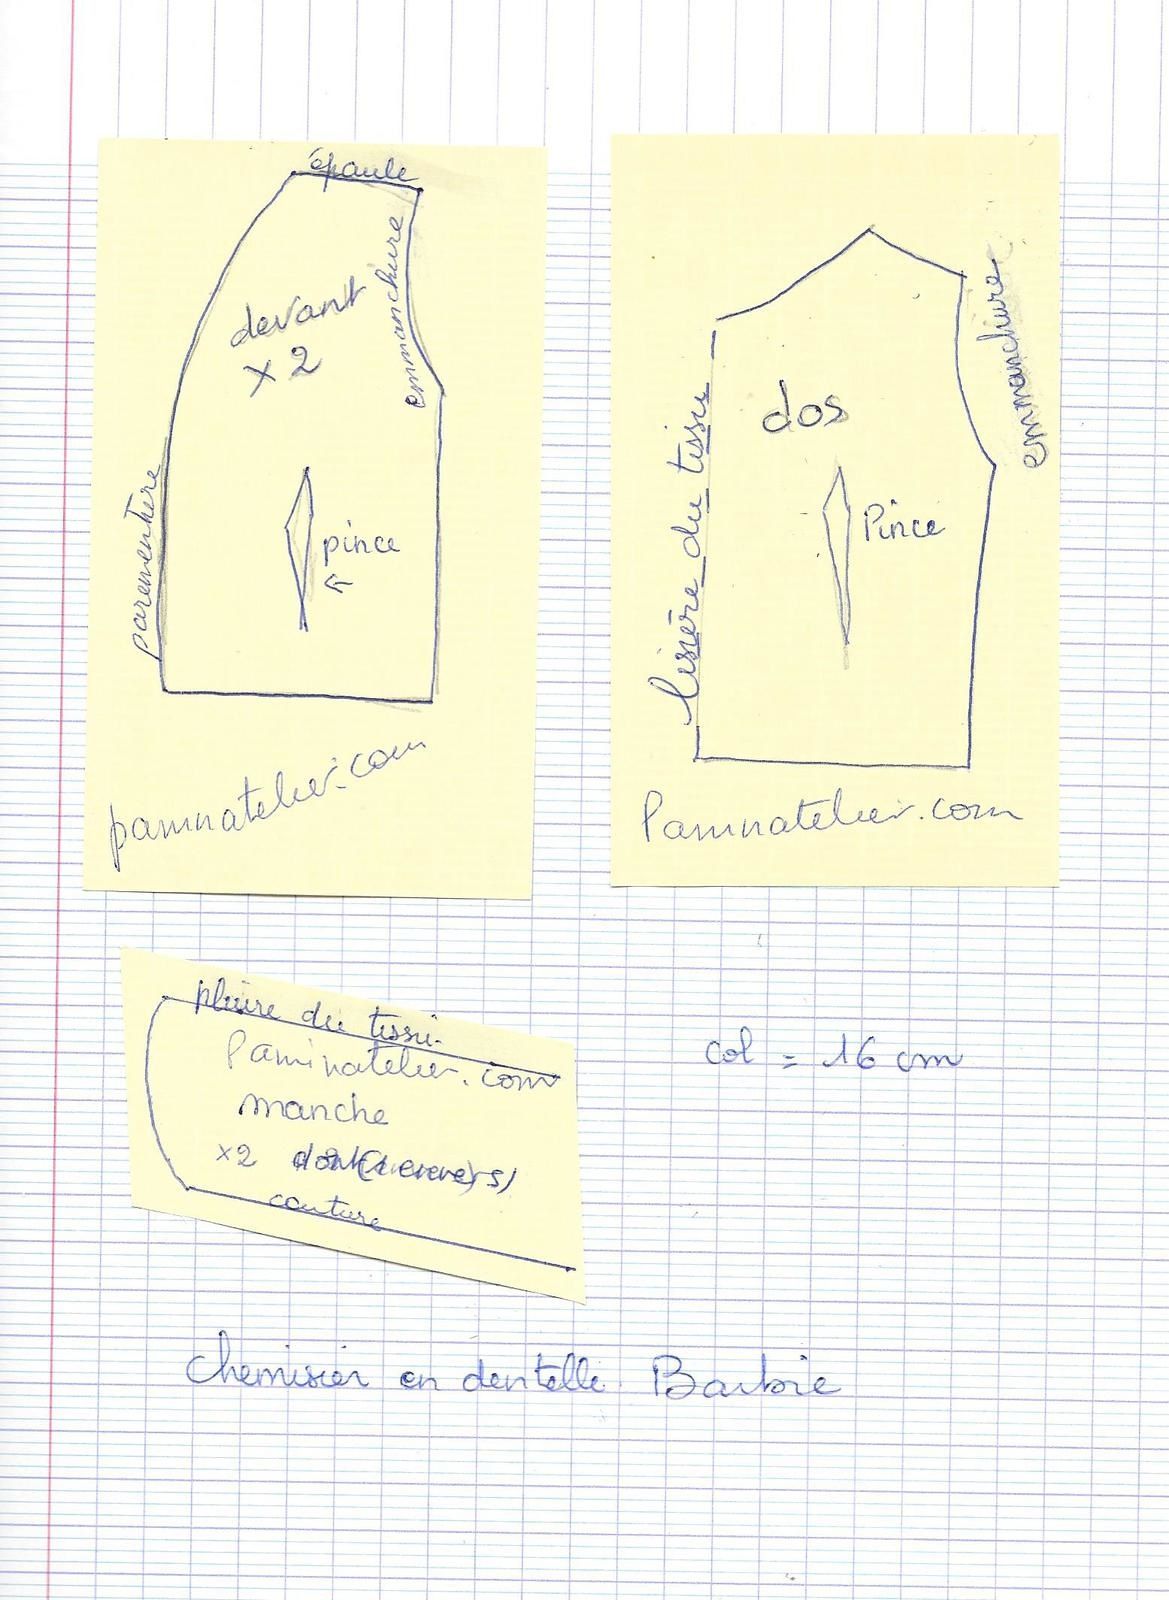 épaule
emmanchure
devant
x 2
parementure
pince
paminatelier.com
emmanchure
dos
lisière du tissu
Pince
Paminatelier.com
pliure du tissu
Paminatelier.com
manche
x2
couture
col = 16 cm
chemisier en dentelle Barbie